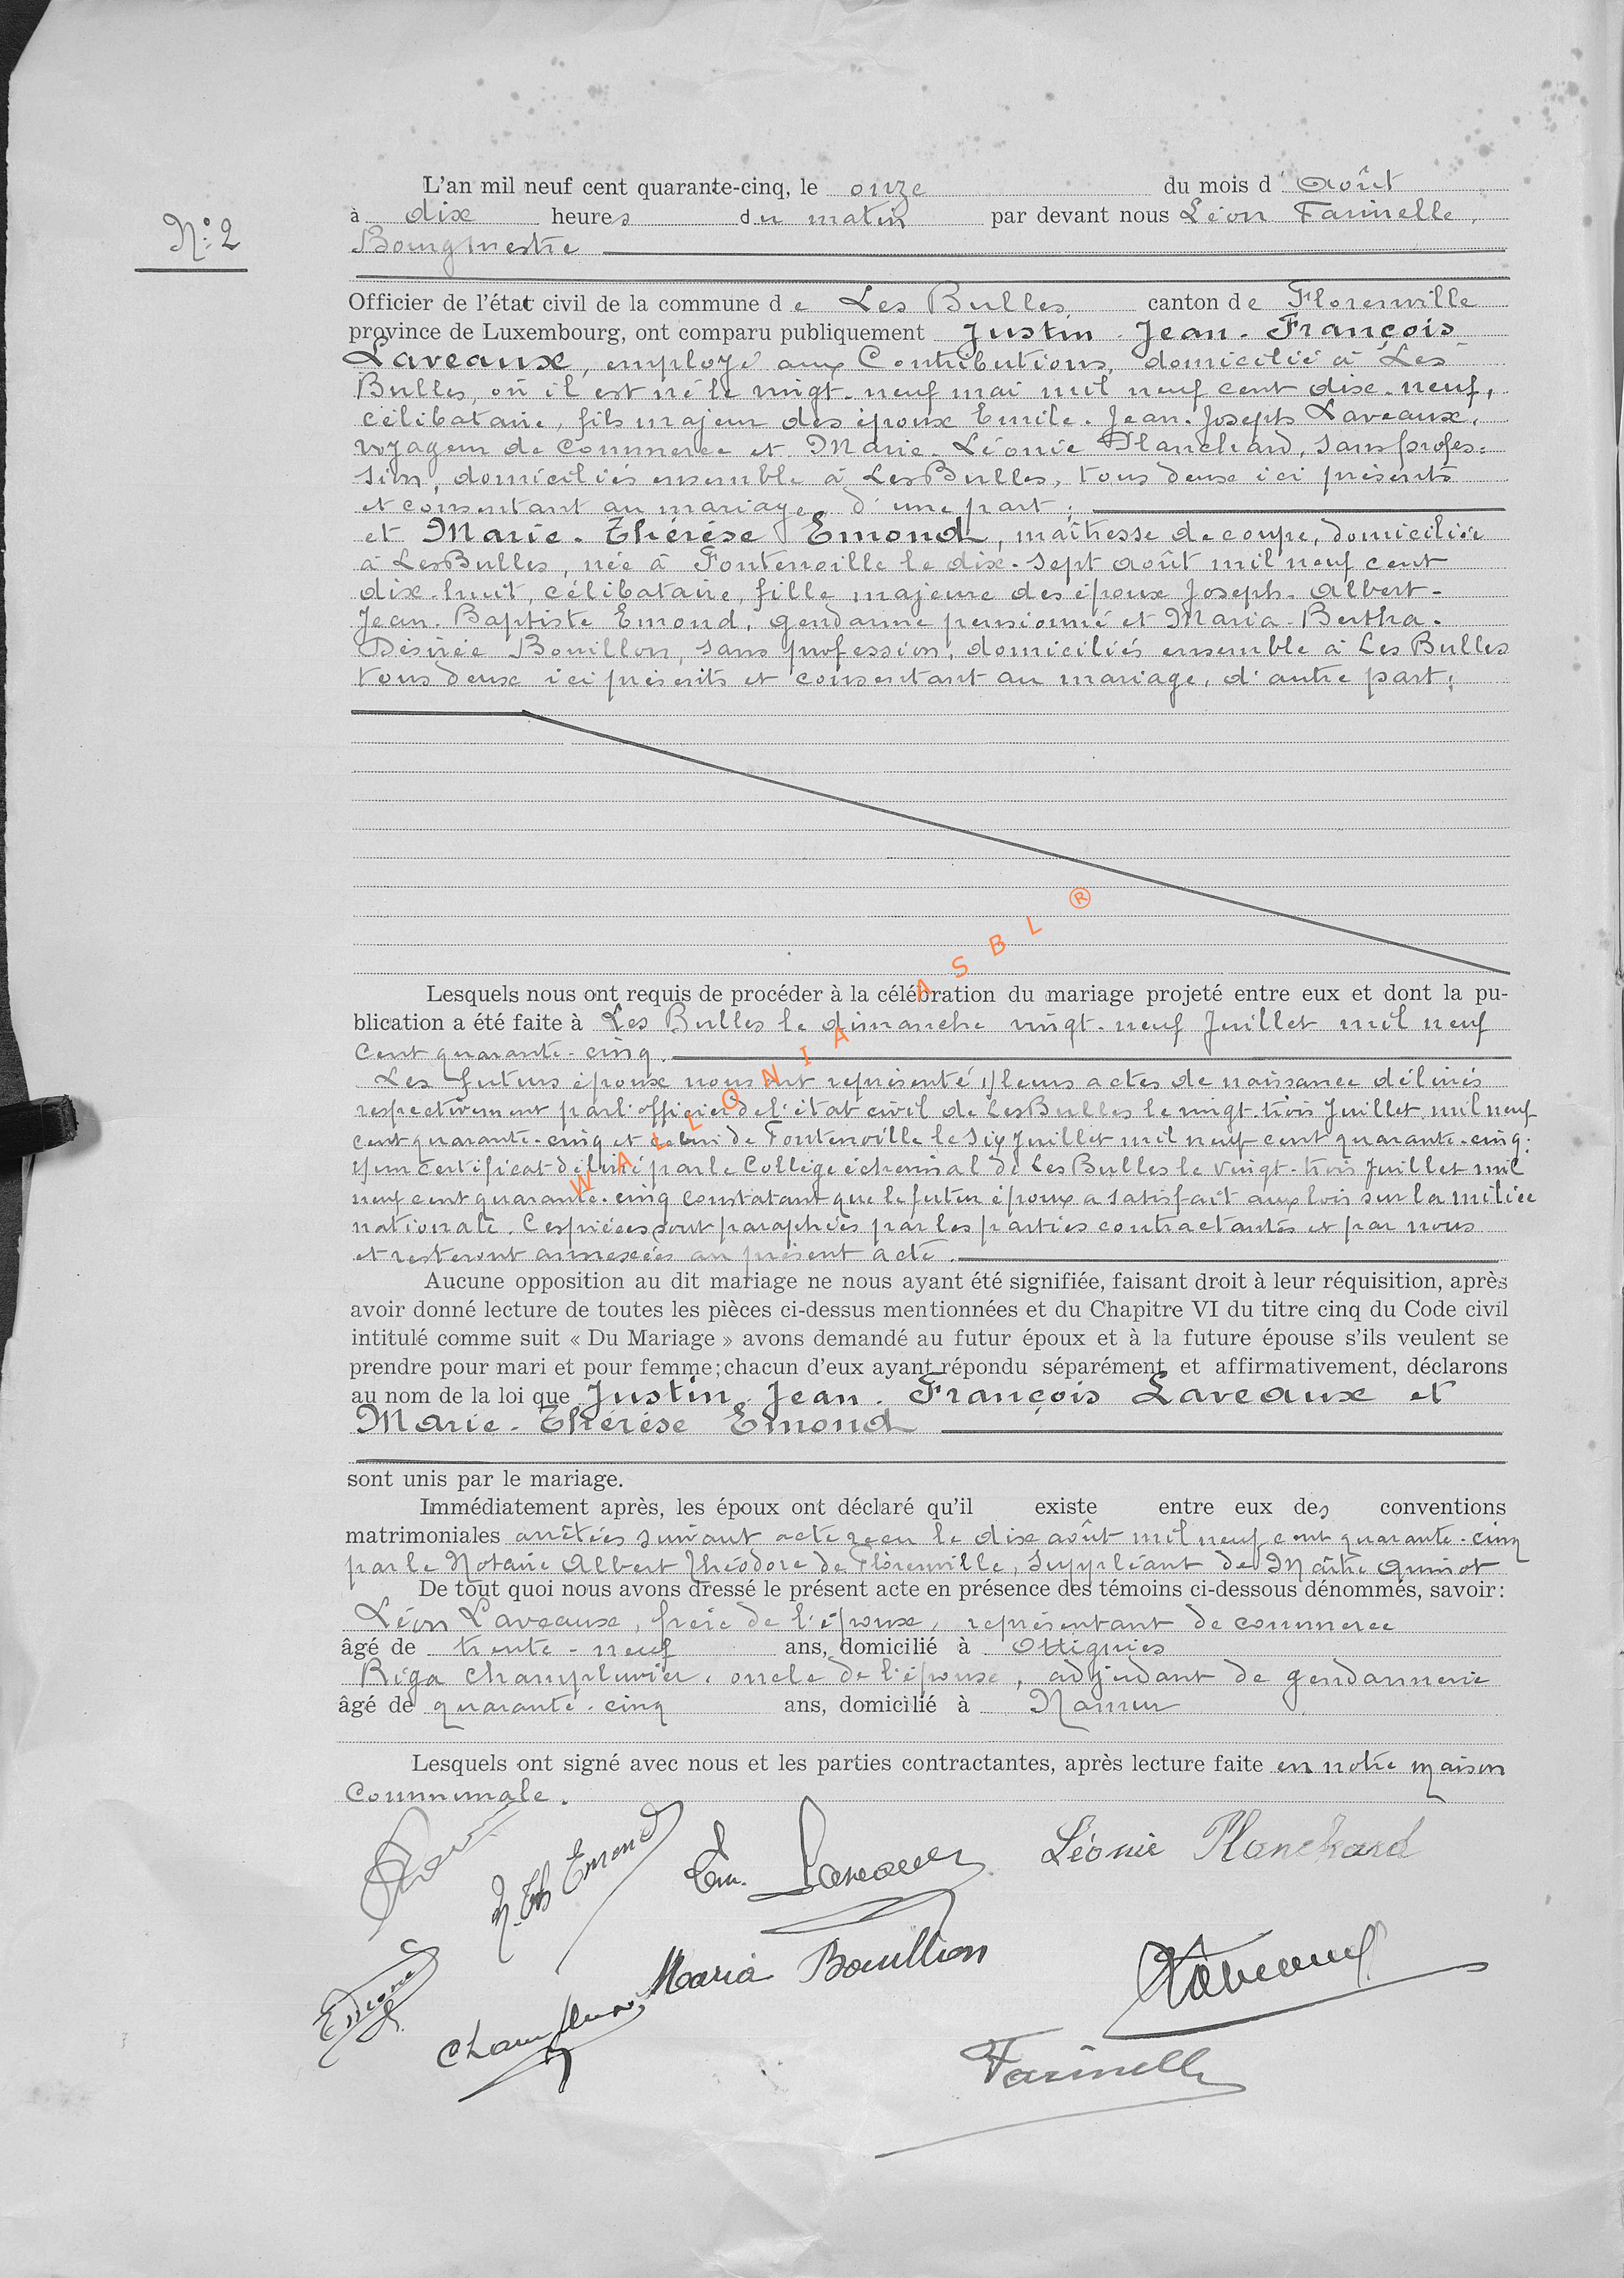 L'an mil neuf cent quarante-cinq, le onze du mois d' Août
à dix heures du matin par devant nous Léon Farinelle,
N° 2
Bourgmestre
Officier de l'état civil de la commune de Les Bulles, canton de Florenville
province de Luxembourg, ont comparu publiquement Justin - Jean - François
Laveaux, employé aux Contributions, domicilié à Les
Bulles, où il est né le vingt-neuf mai mil neuf cent dix-neuf,
célibataire, fils majeur des époux Emile-Jean-Joseph Laveaux,
voyageur de Commerce et Marie-Léonie Planchard, sans profes=
sion, domiciliés ensemble à Les Bulles, tous deux ici présents
et consentant au mariage, d'une part;
et Marie-Thérèse Emond, maîtresse de coupe, domiciliée
à Les Bulles, née à Fontenoille le dix-sept août mil neuf cent
dix-huit, célibataire, fille majeure des époux Joseph-Albert-
Jean-Baptiste Emond, gendarme pensionné et Maria-Bertha-
Désirée Bouillon, sans profession, domiciliés ensemble à Les Bulles
tous deux ici présents et consentant au mariage, d'autre part;
Lesquels nous ont requis de procéder à la célébration du mariage projeté entre eux et dont la pu-
blication a été faite à Les Bulles le dimanche vingt-neuf Juillet mil neuf
Cent quarante-cinq.
Les futurs époux nous ont représenté 1) leurs actes de naissance délivrés
respectivement par l'officier de l'état civil de Les Bulles le vingt-trois Juillet mil neuf
cent quarante-cinq et celui de Fontenoille le six Juillet mil neuf cent quarante-cinq;
2) un certificat délivré par le Collège échevinal de Les Bulles le vingt-trois Juillet mil
neuf cent quarante-cinq constatant que le futur époux a satisfait aux lois sur la milice
nationale. Ces pièces sont paraphées par les parties contractantes et par nous
et resteront annexées au présent acte.
Aucune opposition au dit mariage ne nous ayant été signifiée, faisant droit à leur réquisition, après
avoir donné lecture de toutes les pièces ci-dessus mentionnées et du Chapitre VI du titre cinq du Code civil
intitulé comme suit « Du Mariage » avons demandé au futur époux et à la future épouse s'ils veulent se
prendre pour mari et pour femme; chacun d'eux ayant répondu séparément et affirmativement, déclarons
au nom de la loi que Justin-Jean-François Laveaux et
Marie-Thérèse Emond
sont unis par le mariage.
Immédiatement après, les époux ont déclaré qu'il existe entre eux des conventions
matrimoniales arrêtées suivant acte reçu le dix août mil neuf cent quarante-cinq
par le Notaire Albert Théodore de Florenville, suppléant de Maître Quinot
De tout quoi nous avons dressé le présent acte en présence des témoins ci-dessous dénommés, savoir:
Léon Laveaux, frère de l'époux, représentant de commerce
âgé de trente-neuf ans, domicilié à Ottignies
Riga Champluvier, oncle de l'épouse, adjudant de gendarmerie
âgé de quarante-cinq ans, domicilié à Namur
Lesquels ont signé avec nous et les parties contractantes, après lecture faite en notre maison
Communale.
M. Th Emond
Em. Laveaux
Léonie Planchard
Maria Bouillon
Laveaux
Emond
Champluvier
Farinelle
WALLONIA ASBL ®